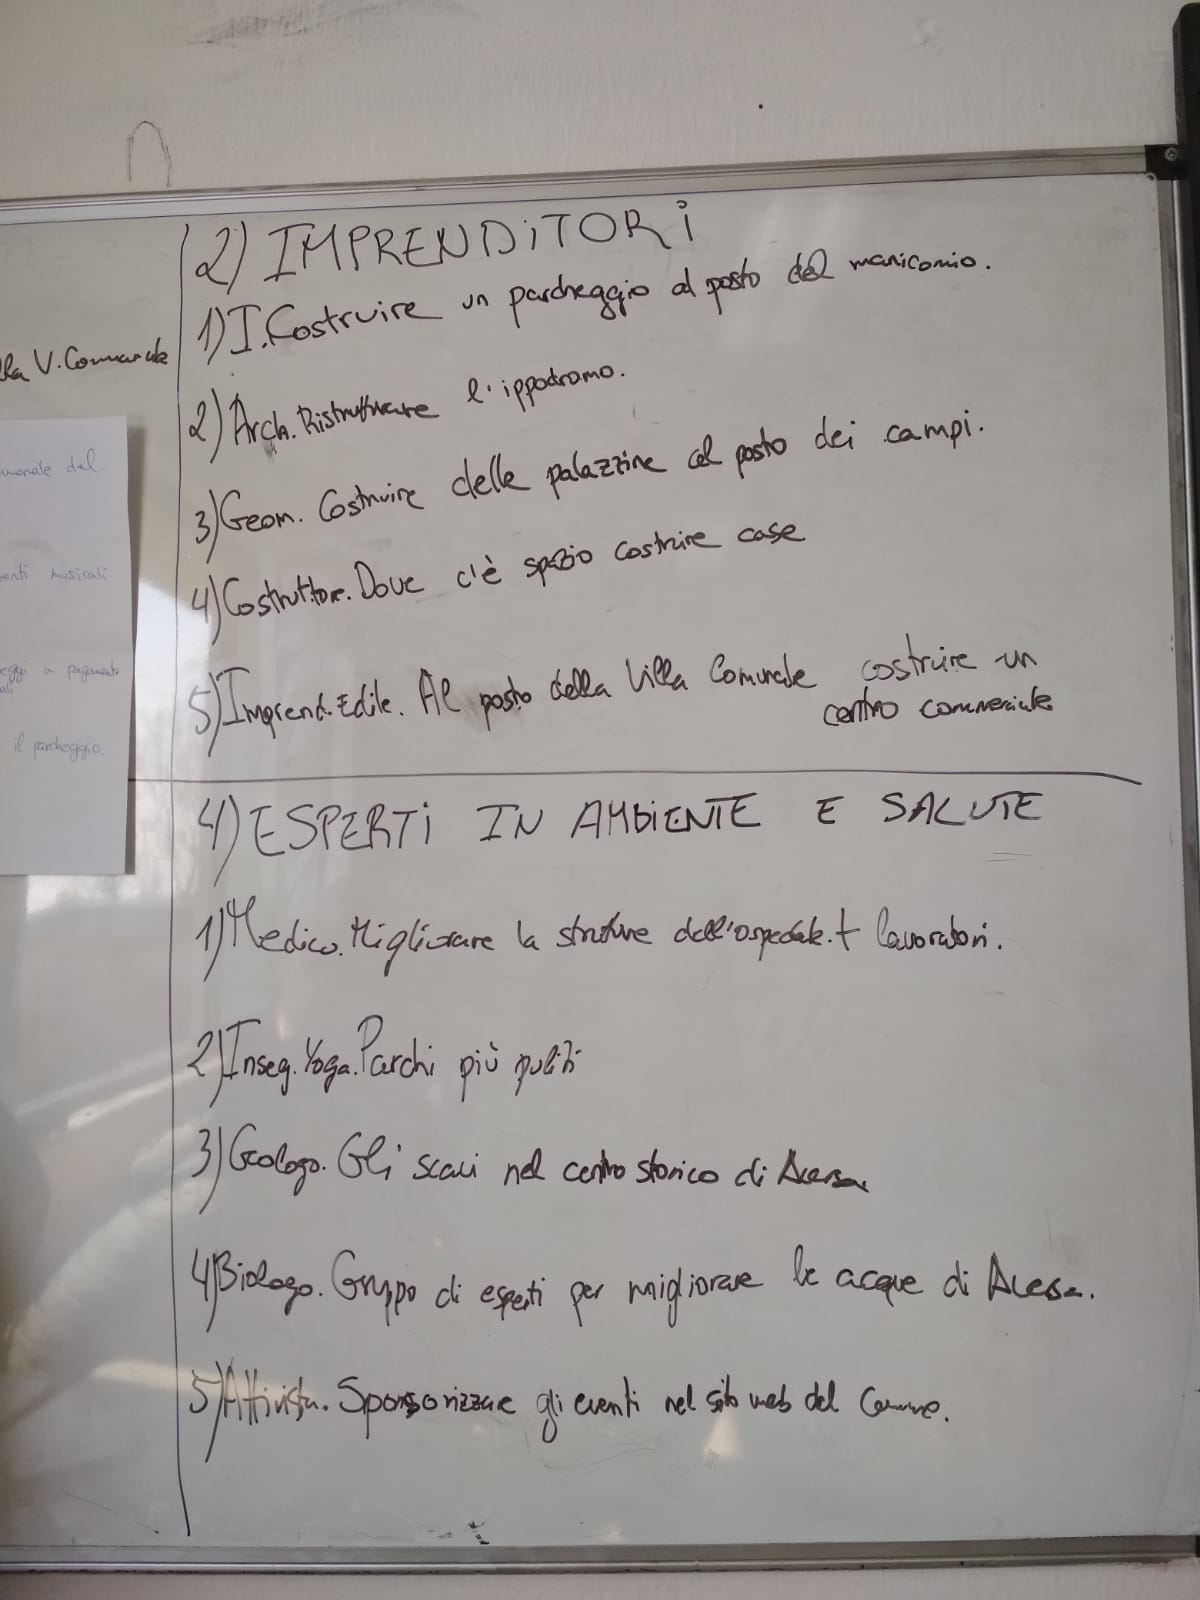 2) IMPRENDITORI
1) I. Costruire un parcheggio al posto del manicomio.
2) Arch. Ristrutturare l'ippodromo.
3) Geom. Costruire delle palazzine al posto dei campi.
4) Costruttore. Dove c'è spazio costruire case
5) Imprend. Edile. Al posto della Villa Comunale costruire un
centro commerciale
4) ESPERTI IN AMBIENTE E SALUTE
1) Medico. Migliorare la strutture dell'ospedale. + lavoratori.
2) Inseg. Yoga. Parchi più puliti
3) Geologo. Gli scavi nel centro storico di Aversa
4) Biologo. Gruppo di esperti per migliorare le acque di Aversa.
5) Attivista. Sponsorizzare gli eventi nel sito web del Comune.
lla V. Comunale
munale del
enti musicali
eggi a pagamento
ali
il parcheggio